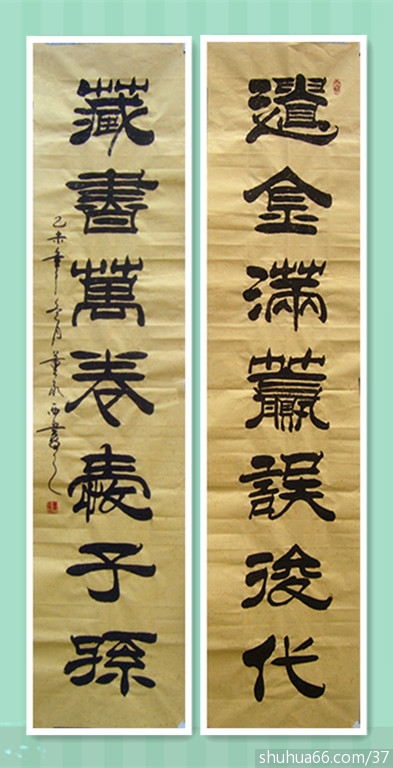 遺金滿籯誤後代
藏書萬卷子孫
未年冬月董永西書
shuhua66.com/37